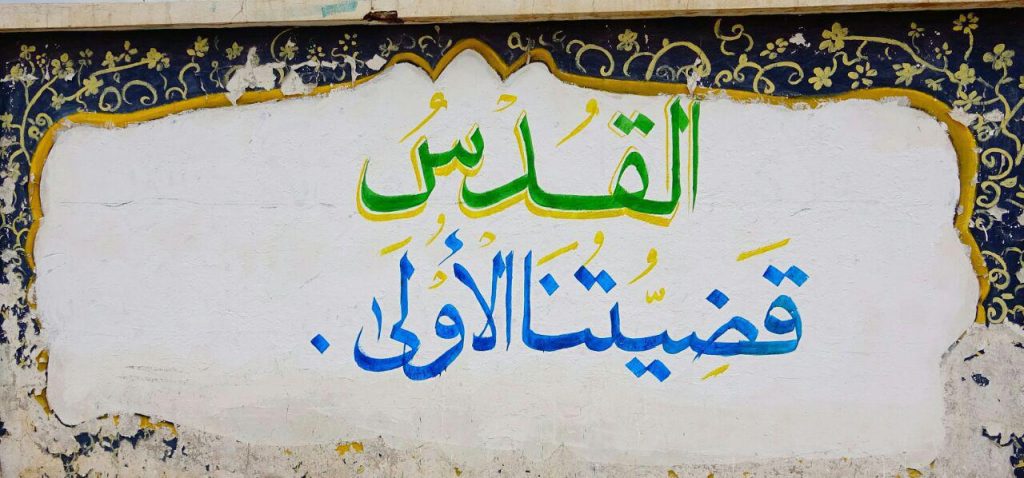 القُدْسُ
قَضِيَّتُنَا الأُوْلَى.